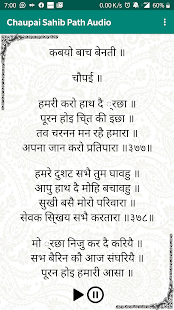 7:00
0.00K/s
62%
Chaupai Sahib Path Audio
कबयो बाच बेनती ॥
चौपई ॥
हमरी करो हाथ दै ्रछा ॥
पूरन होइ चि्त की इछा ॥
तव चरनन मन रहै हमारा ॥
अपना जान करो प्रतिपारा ॥३७७॥
हमरे दुशट सभै तुम घावहु ॥
आपु हाथ दै मोहि बचावहु ॥
सुखी बसै मोरो परिवारा ॥
सेवक सि्खय सभै करतारा ॥३७८॥
मो ्रछा निजु कर दै करियै ॥
सभ बैरिन कौ आज संघरियै ॥
पूरन होइ हमारी आसा ॥